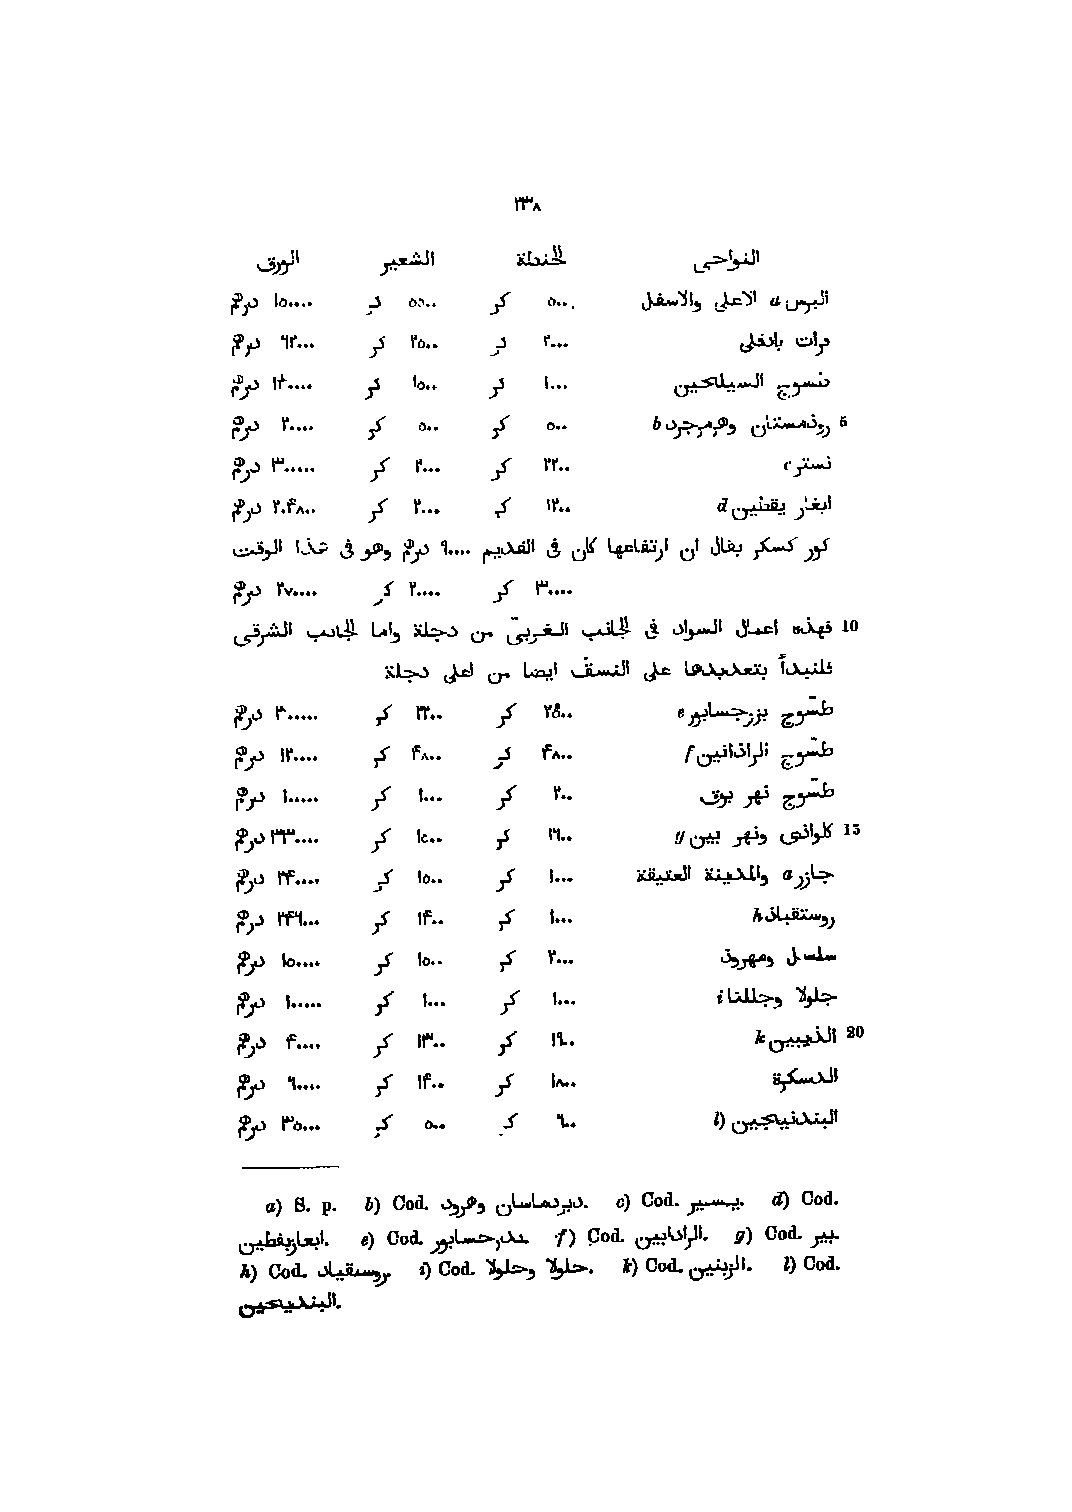 ٢٣٨
النواحى الحنطة الشعير الورق
البرس a الاعلى والاسفل ٥٠٠ كر ٥٥٠٠ كر ١٥٠٠٠٠ درهم
فرات بادقلى ٢٠٠٠ كر ٢٥٠٠ كر ٦٢٠٠٠ درهم
طسوج السيلحين ١٠٠٠ كر ١٥٠٠ كر ١٤٠٠٠٠ درهم
5 روذمستان وهرمجرد b ٥٠٠ كر ٥٠٠ كر ٢٠٠٠٠ درهم
نستر c ٢٢٠٠ كر ٢٠٠٠ كر ٣٠٠٠٠٠ درهم
ايغار يقطين d ١٢٠٠ كر ٢٠٠٠ كر ٢٠٤٨٠٠ درهم
كور كسكر يقال ان ارتفاعها كان فى القديم ٩٠٠٠٠ درهم وهو فى هذا الوقت
٣٠٠٠٠ كر ٢٠٠٠٠ كر ٢٧٠٠٠٠ درهم
10 فهذه اعمال السواد فى الجانب الغربىّ من دجلة واما الجانب الشرقى
فلنبدأ بتعديدها على النسق ايضا من اعلى دجلة
طسّوج بزرجسابور e ٢٥٠٠ كر ٢٢٠٠ كر ٣٠٠٠٠٠ درهم
طسّوج الراذانين f ٤٨٠٠ كر ٤٨٠٠ كر ١٢٠٠٠٠ درهم
طسّوج نهر بوق ٢٠٠ كر ١٠٠٠ كر ١٠٠٠٠٠ درهم
15 كلواذى ونهر بين g ١٦٠٠ كر ١٥٠٠ كر ٣٣٠٠٠٠ درهم
جازر a والمدينة العتيقة ١٠٠٠ كر ١٥٠٠ كر ٢٤٠٠٠٠ درهم
روستقباذ h ١٠٠٠ كر ١٤٠٠ كر ٢٤٦٠٠٠ درهم
سلسل ومهروذ ٢٠٠٠ كر ١٥٠٠ كر ١٥٠٠٠٠ درهم
جلولا وجللتا i ١٠٠٠ كر ١٠٠٠ كر ١٠٠٠٠٠ درهم
20 الذيبين k ١٩٠٠ كر ١٣٠٠ كر ٤٠٠٠٠ درهم
الدسكرة ١٨٠٠ كر ١٤٠٠ كر ٦٠٠٠٠ درهم
البندنيجين l) ٦٠٠ كر ٥٠٠ كر ٣٥٠٠٠ درهم
a) S. p. b) Cod. ديردماسان وهرود. c) Cod. يسير. d) Cod.
ابعاريفطين. e) Cod. بدرحسابور. f) Cod. الرادابين. g) Cod. بير
h) Cod. روسقياد. i) Cod. حلولا وحلولا. k) Cod. الربنين. l) Cod.
البندبيحين.